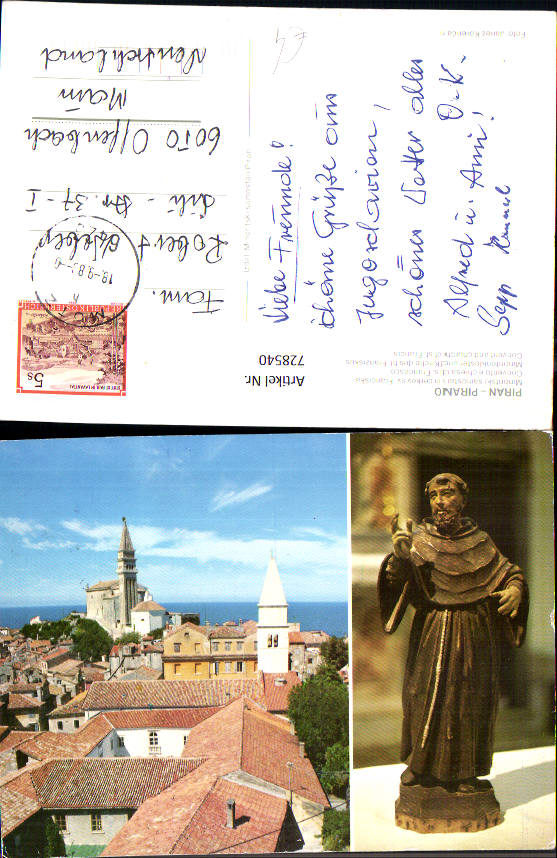 PIRAN - PIRANO
Minoritski samostan in cerkev sv. Frančiška
Convento e chiesa di s. Francesco
Minoritenkloster und Kirche des hl. Franziskus
Convent and church of st. Francis
Artikel Nr.
728540
Liebe Freunde!
schöne Grüße aus
Jugoslavien,
schönes Wetter alles
O.K.
Alfred u. Anni!
Sepp
Fam.
Robert Weber
Lili - Str. 37 - I
6070 Offenbach
Main
Deutschland
5s
Foto: Janez Korenčan